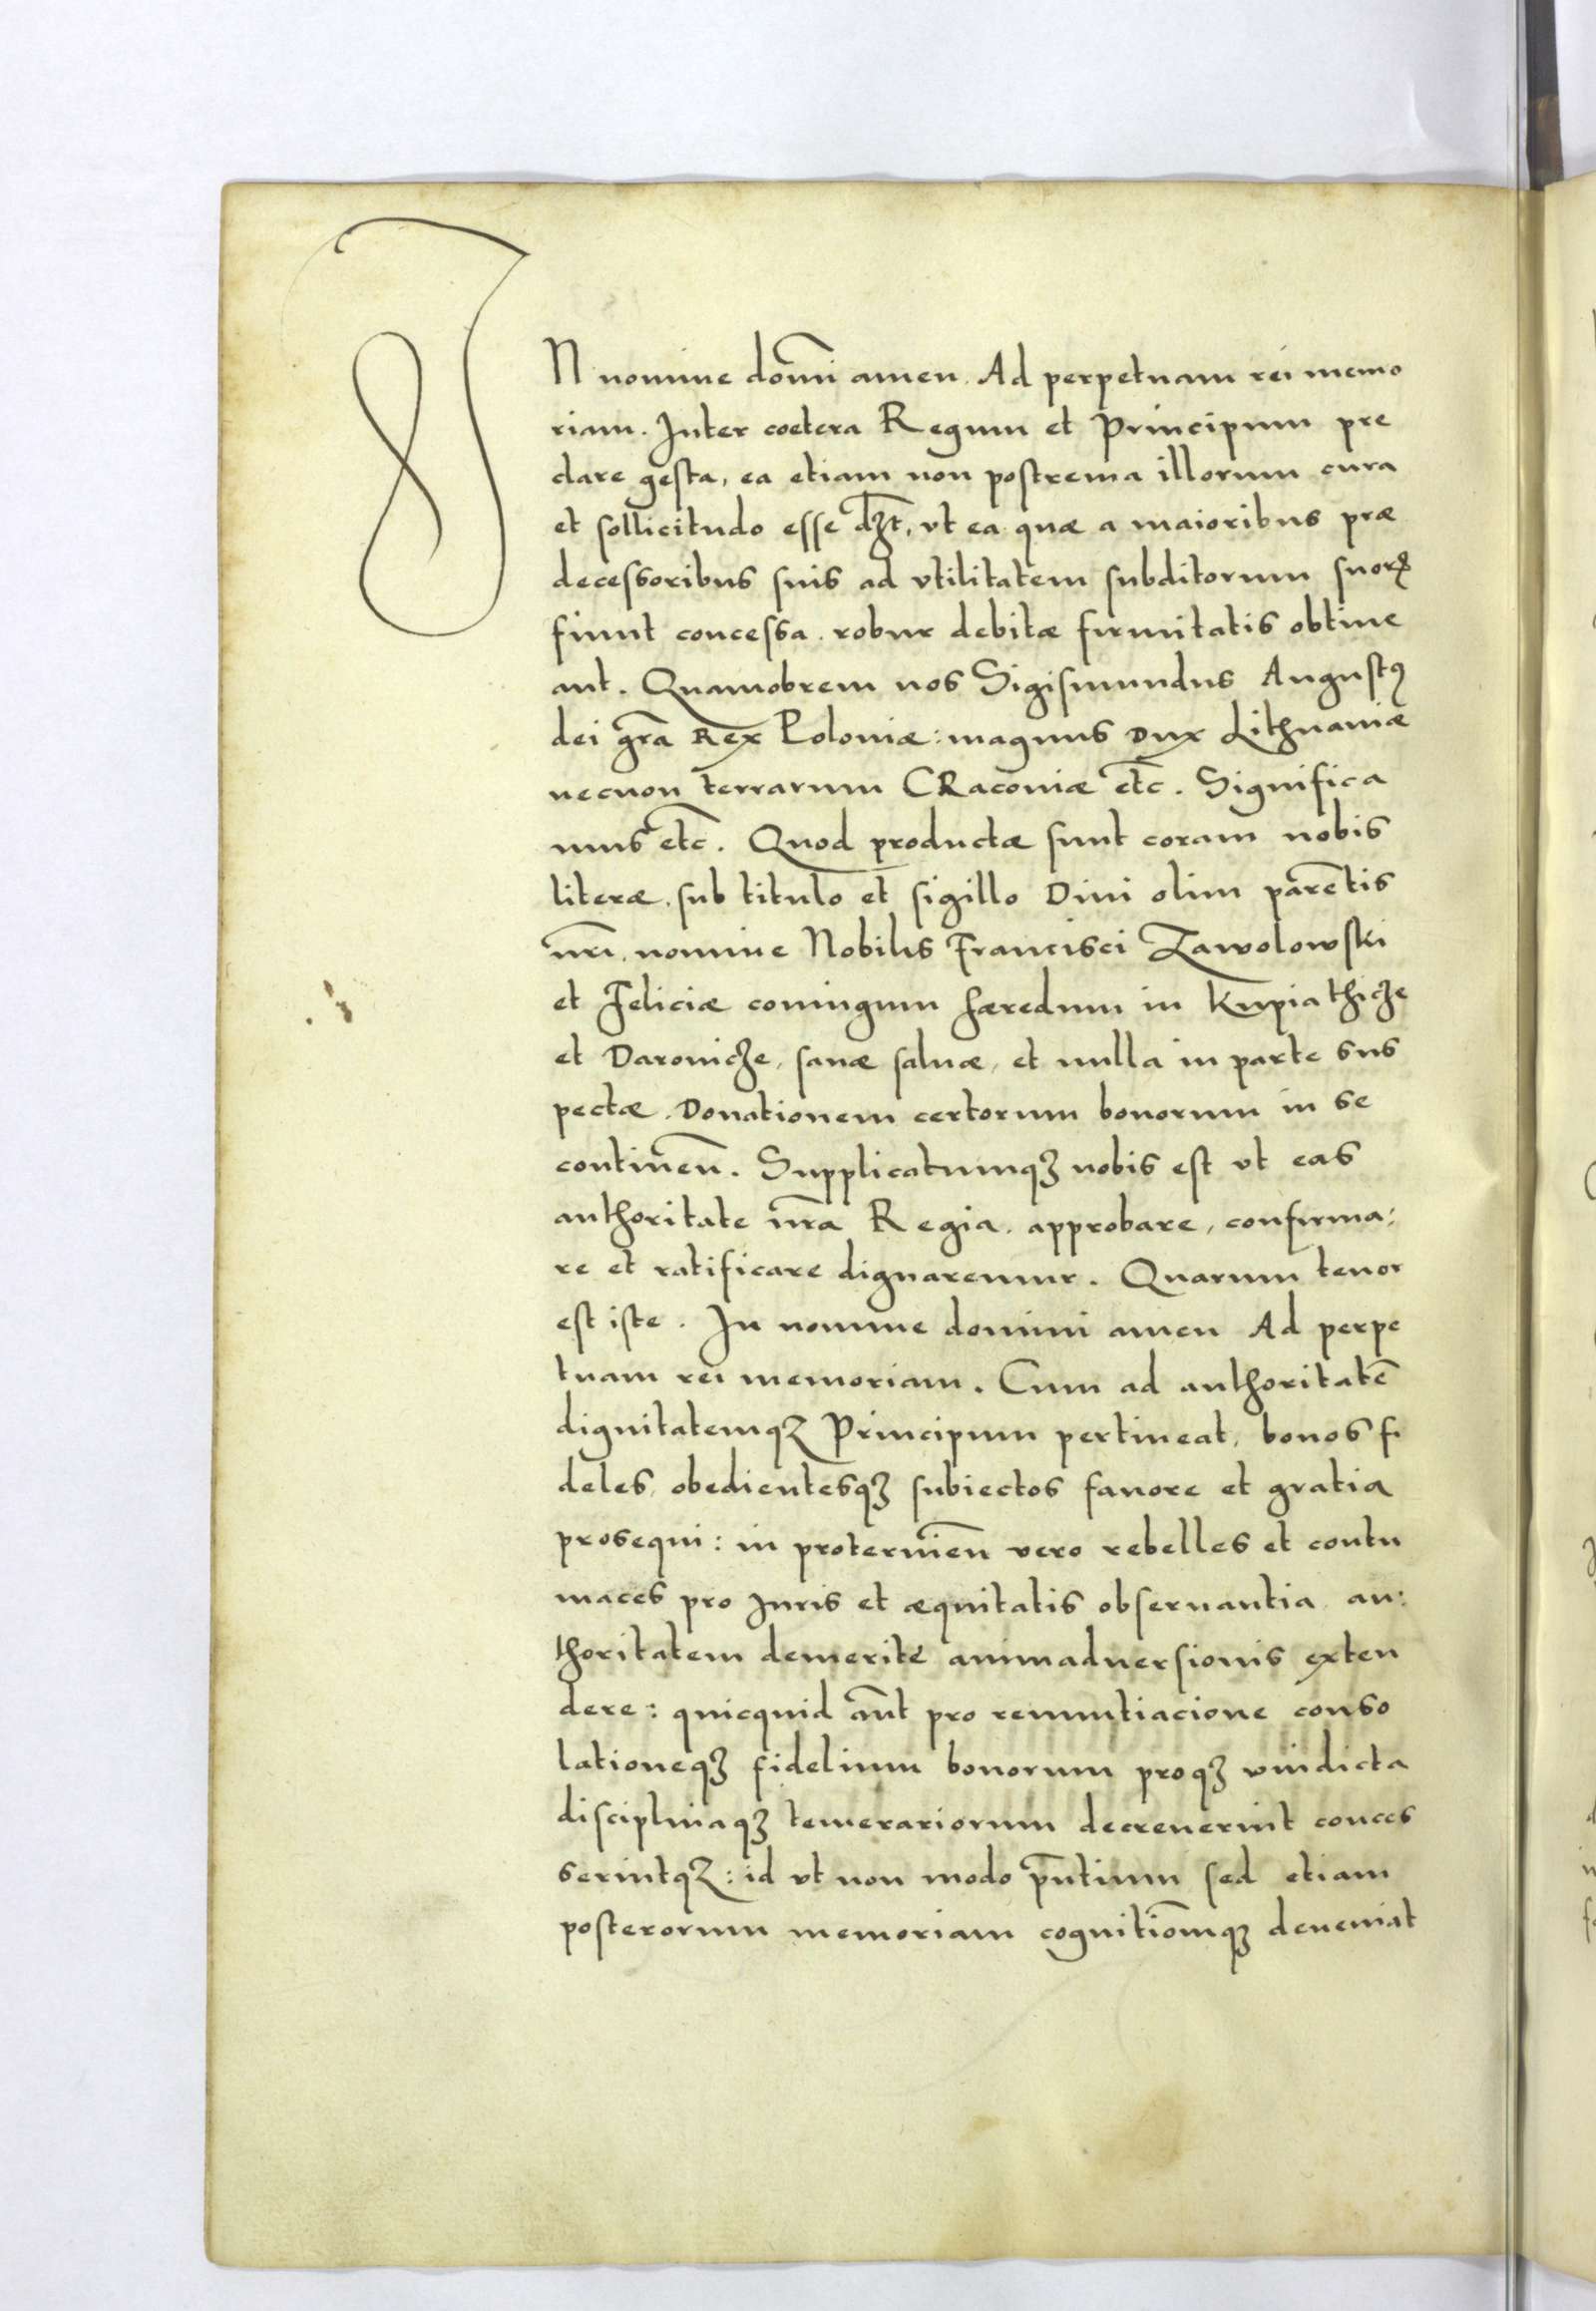 IN nomine domi̅ni amen. Ad perpetuam rei memo
riam. Inter coetera Regum et Principum pre
clare gesta, ea etiam non postrema illorum cura
et sollicitudo esse dʒt̅, vt ea quæ a maioribus præ
decessoribus suis ad vtilitatem subditorum suorꝝ
fiunt concessa. robur debitæ firmitatis obtine
ant. Quamobrem nos Sigismundus Augustꝰ
dei gr̅a Rex Poloniæ: magnus Dux Lithuaniæ
necnon terrarum CRacoviæ etc̅. Significa
mus etc̅. Quod productæ sunt coram nobis
literæ, sub titulo et sigillo Diui olim pare̅tis
nr̅i, nomine Nobilis Francisci Zawolowski
et Feliciæ coniugum hæredum in Kupiathicze
et Darouicze, sanæ saluæ, et nulla in parte sus
pectæ. Donationem certorum bonorum in se
continen̅. Supplicatumqꝫ nobis est vt eas
authoritate nr̅a Regia, approbare, confirma:
re et ratificare dignaremur. Quarum tenor
est iste. In nomine domini amen Ad perpe
tuam rei memoriam. Cum ad authoritate̅
dignitatemqꝫ Principum pertineat, bonos fi
deles, obedientesqꝫ subiectos fauore et gratia
prosequi: in proteruien̅ vero rebelles et contu
maces pro Juris et æquitatis obseruantia au:
thoritatem demerite animaduersionis exten
dere: quicquid au̅t pro remuntiacione conso
lationeqꝫ fidelium bonorum proqꝫ vindicta
disciplinaqꝫ temerariorum decreuerint conces
serintqꝫ: id vt non modo pn̅tium sed etiam
posterorum memoriam cognitio̅mqꝫ deueniat